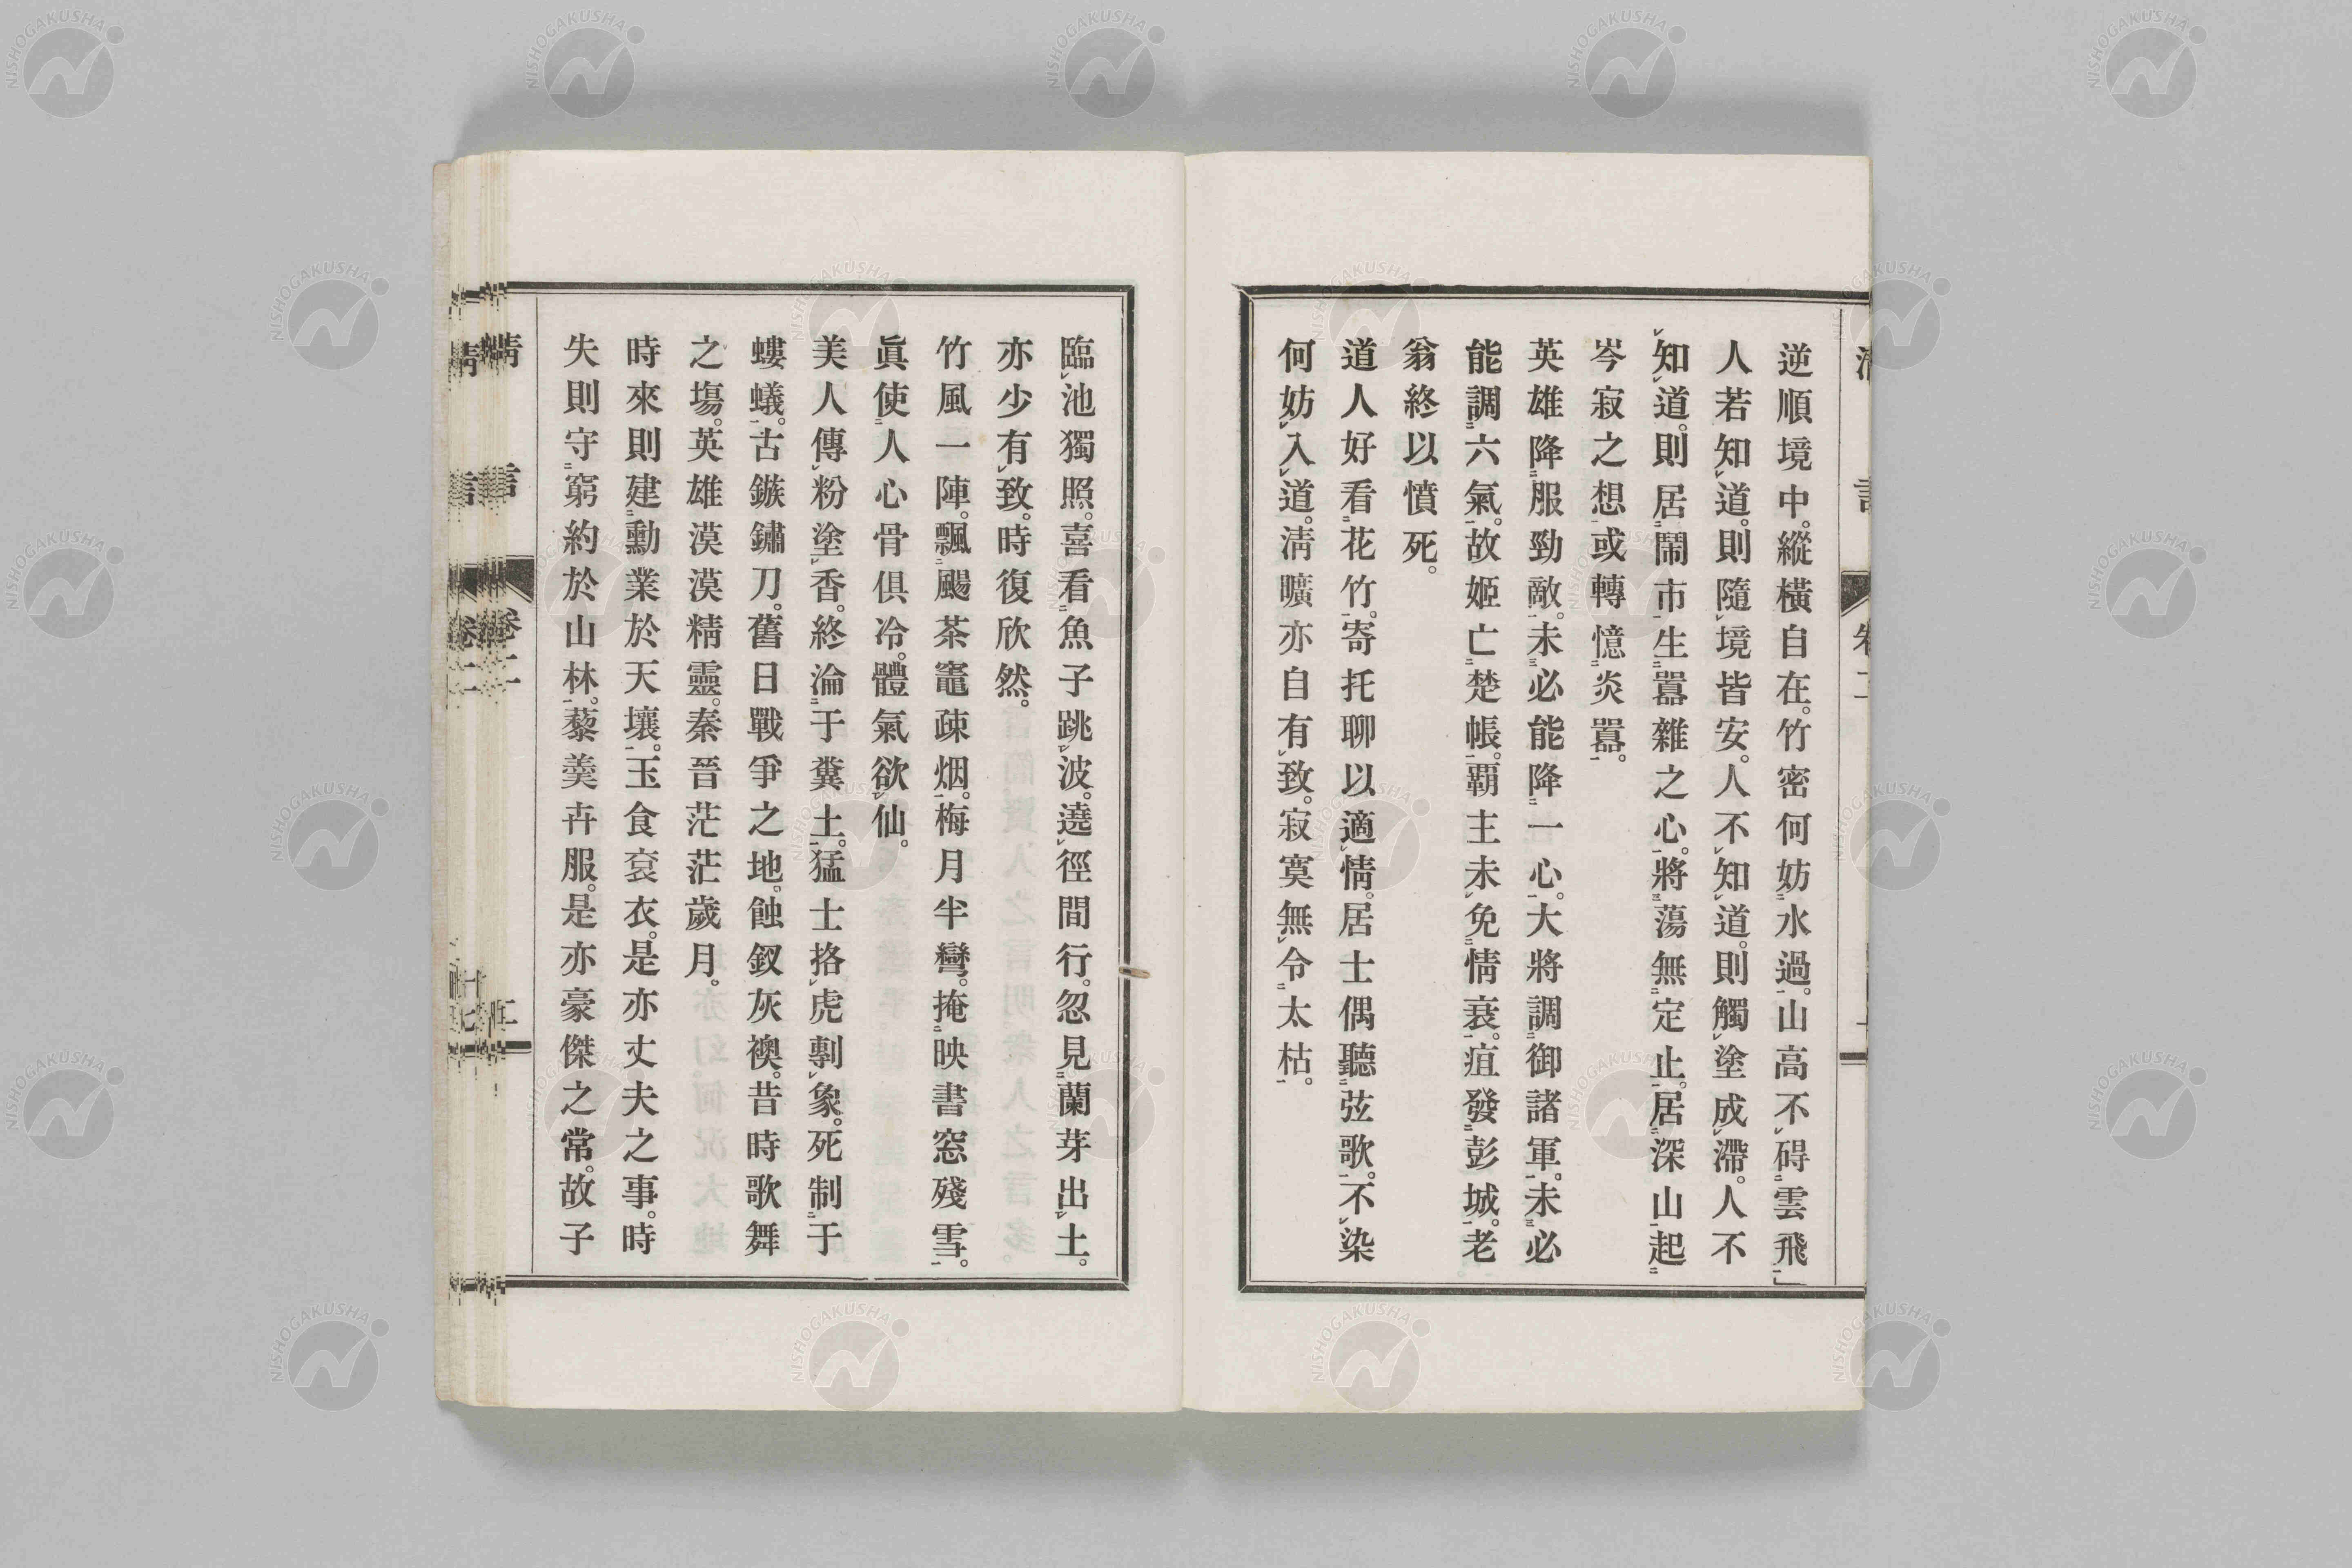 逆順境中。縱橫自在。竹密何妨水過。山高不碍雲飛」
人若知道。則隨境皆安。人不知道。則觸塗成滯。人不
知道。則居鬧市生囂雜之心。將蕩無定止。居深山起
岑寂之想。或轉憶炎囂。
英雄降服勁敵。未必能降一心。大將調御諸軍。未必
能調六氣。故姬亡楚帳。覇主未免情衰。疽發彭城。老
翁終以憤死。
道人好看花竹。寄托聊以適情。居士偶聽弦歌。不染
何妨入道。淸曠亦自有致。寂寞無令太枯。
臨池獨照。喜看魚子跳波。遶徑間行。忽見蘭芽出土。
亦少有致。時復欣然。
竹風一陣。飄颺茶竈疎烟。梅月半彎。掩映書窓殘雪。
眞使人心骨俱冷。體氣欲仙。
美人傳粉塗香。終淪于糞土。猛士挌虎剸象。死制于
螻蟻。古鏃鏽刀。舊日戰爭之地。蝕釵灰襖。昔時歌舞
之塲。英雄漠漠精靈。秦晉茫茫歲月。
時來則建勳業於天壤。玉食袞衣。是亦丈夫之事。時
失則守窮約於山林。藜羹卉服。是亦豪傑之常。故子
淸言
卷二
NISHOGAKUSHA